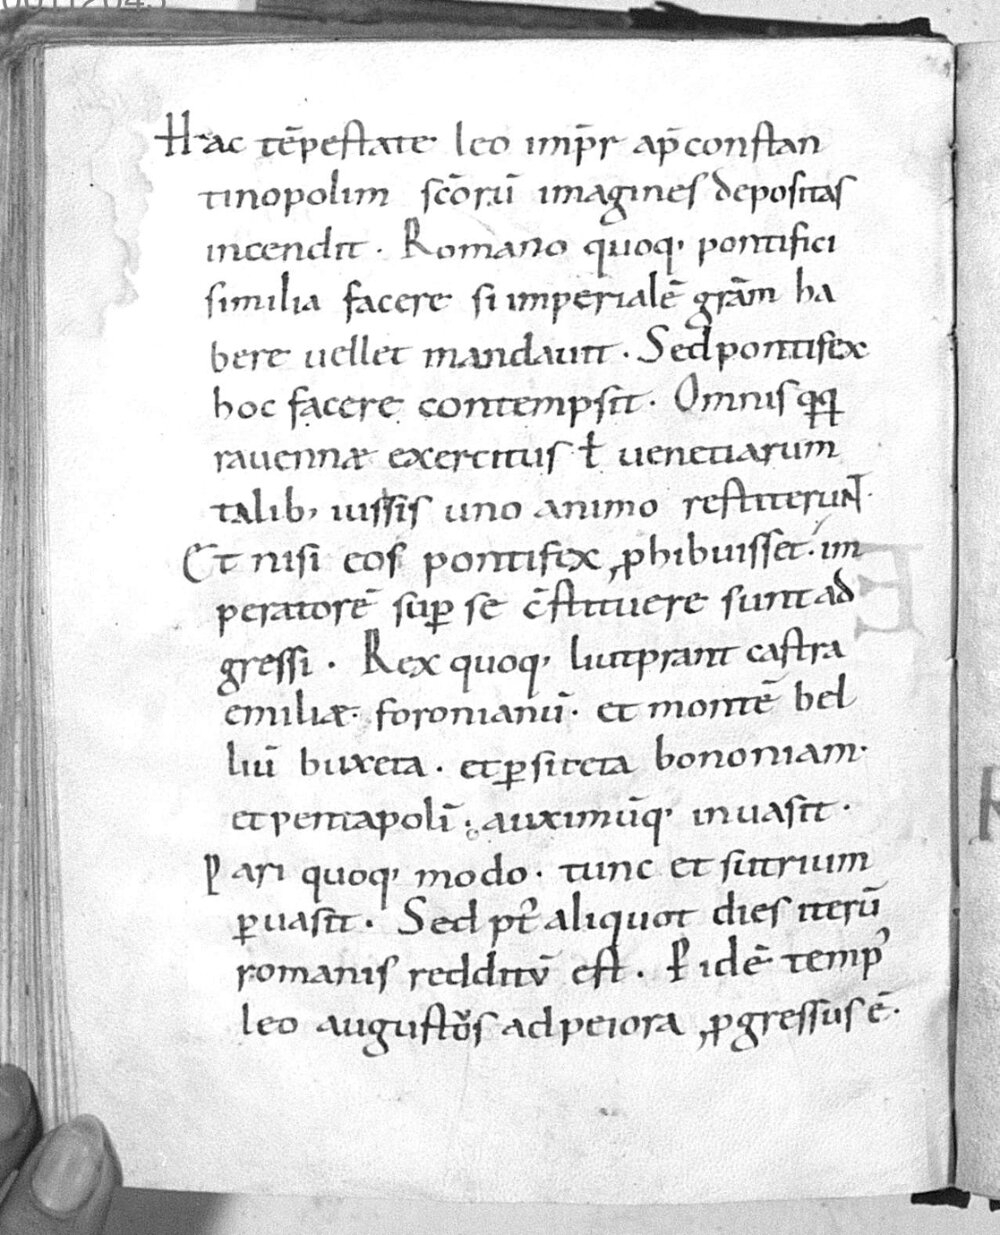 Hac tēpestate leo imp̄r ap̄ constan
tinopolim sc̄orū imagines depositas
incendit · Romano quoq, pontifici
similia facere si imperialē grām ha
bere uellet mandauit · Sed pontifex
hoc facere contempsit · Omnis qq
rauennæ exercitus ł uenetiarum
talib, iussis uno animo restiterunt ·
Et nisi eos pontifex ꝓhibuisset · im
peratorē suꝑ se c̄stituere sunt ad
gressi · Rex quoq, liutprant castra
emiliæ · foronianū · et montē bel
liū buxeta · et ꝑsiceta bononiam ·
et pentapolī · auximūq, inuasit ·
Pari quoq, modo · tunc et sutrium
ꝑuasit · Sed pt̄ aliquot dies iterū
romanis redditū est · P idē temp'
leo augustos ad peiora ꝓgressus ē ·